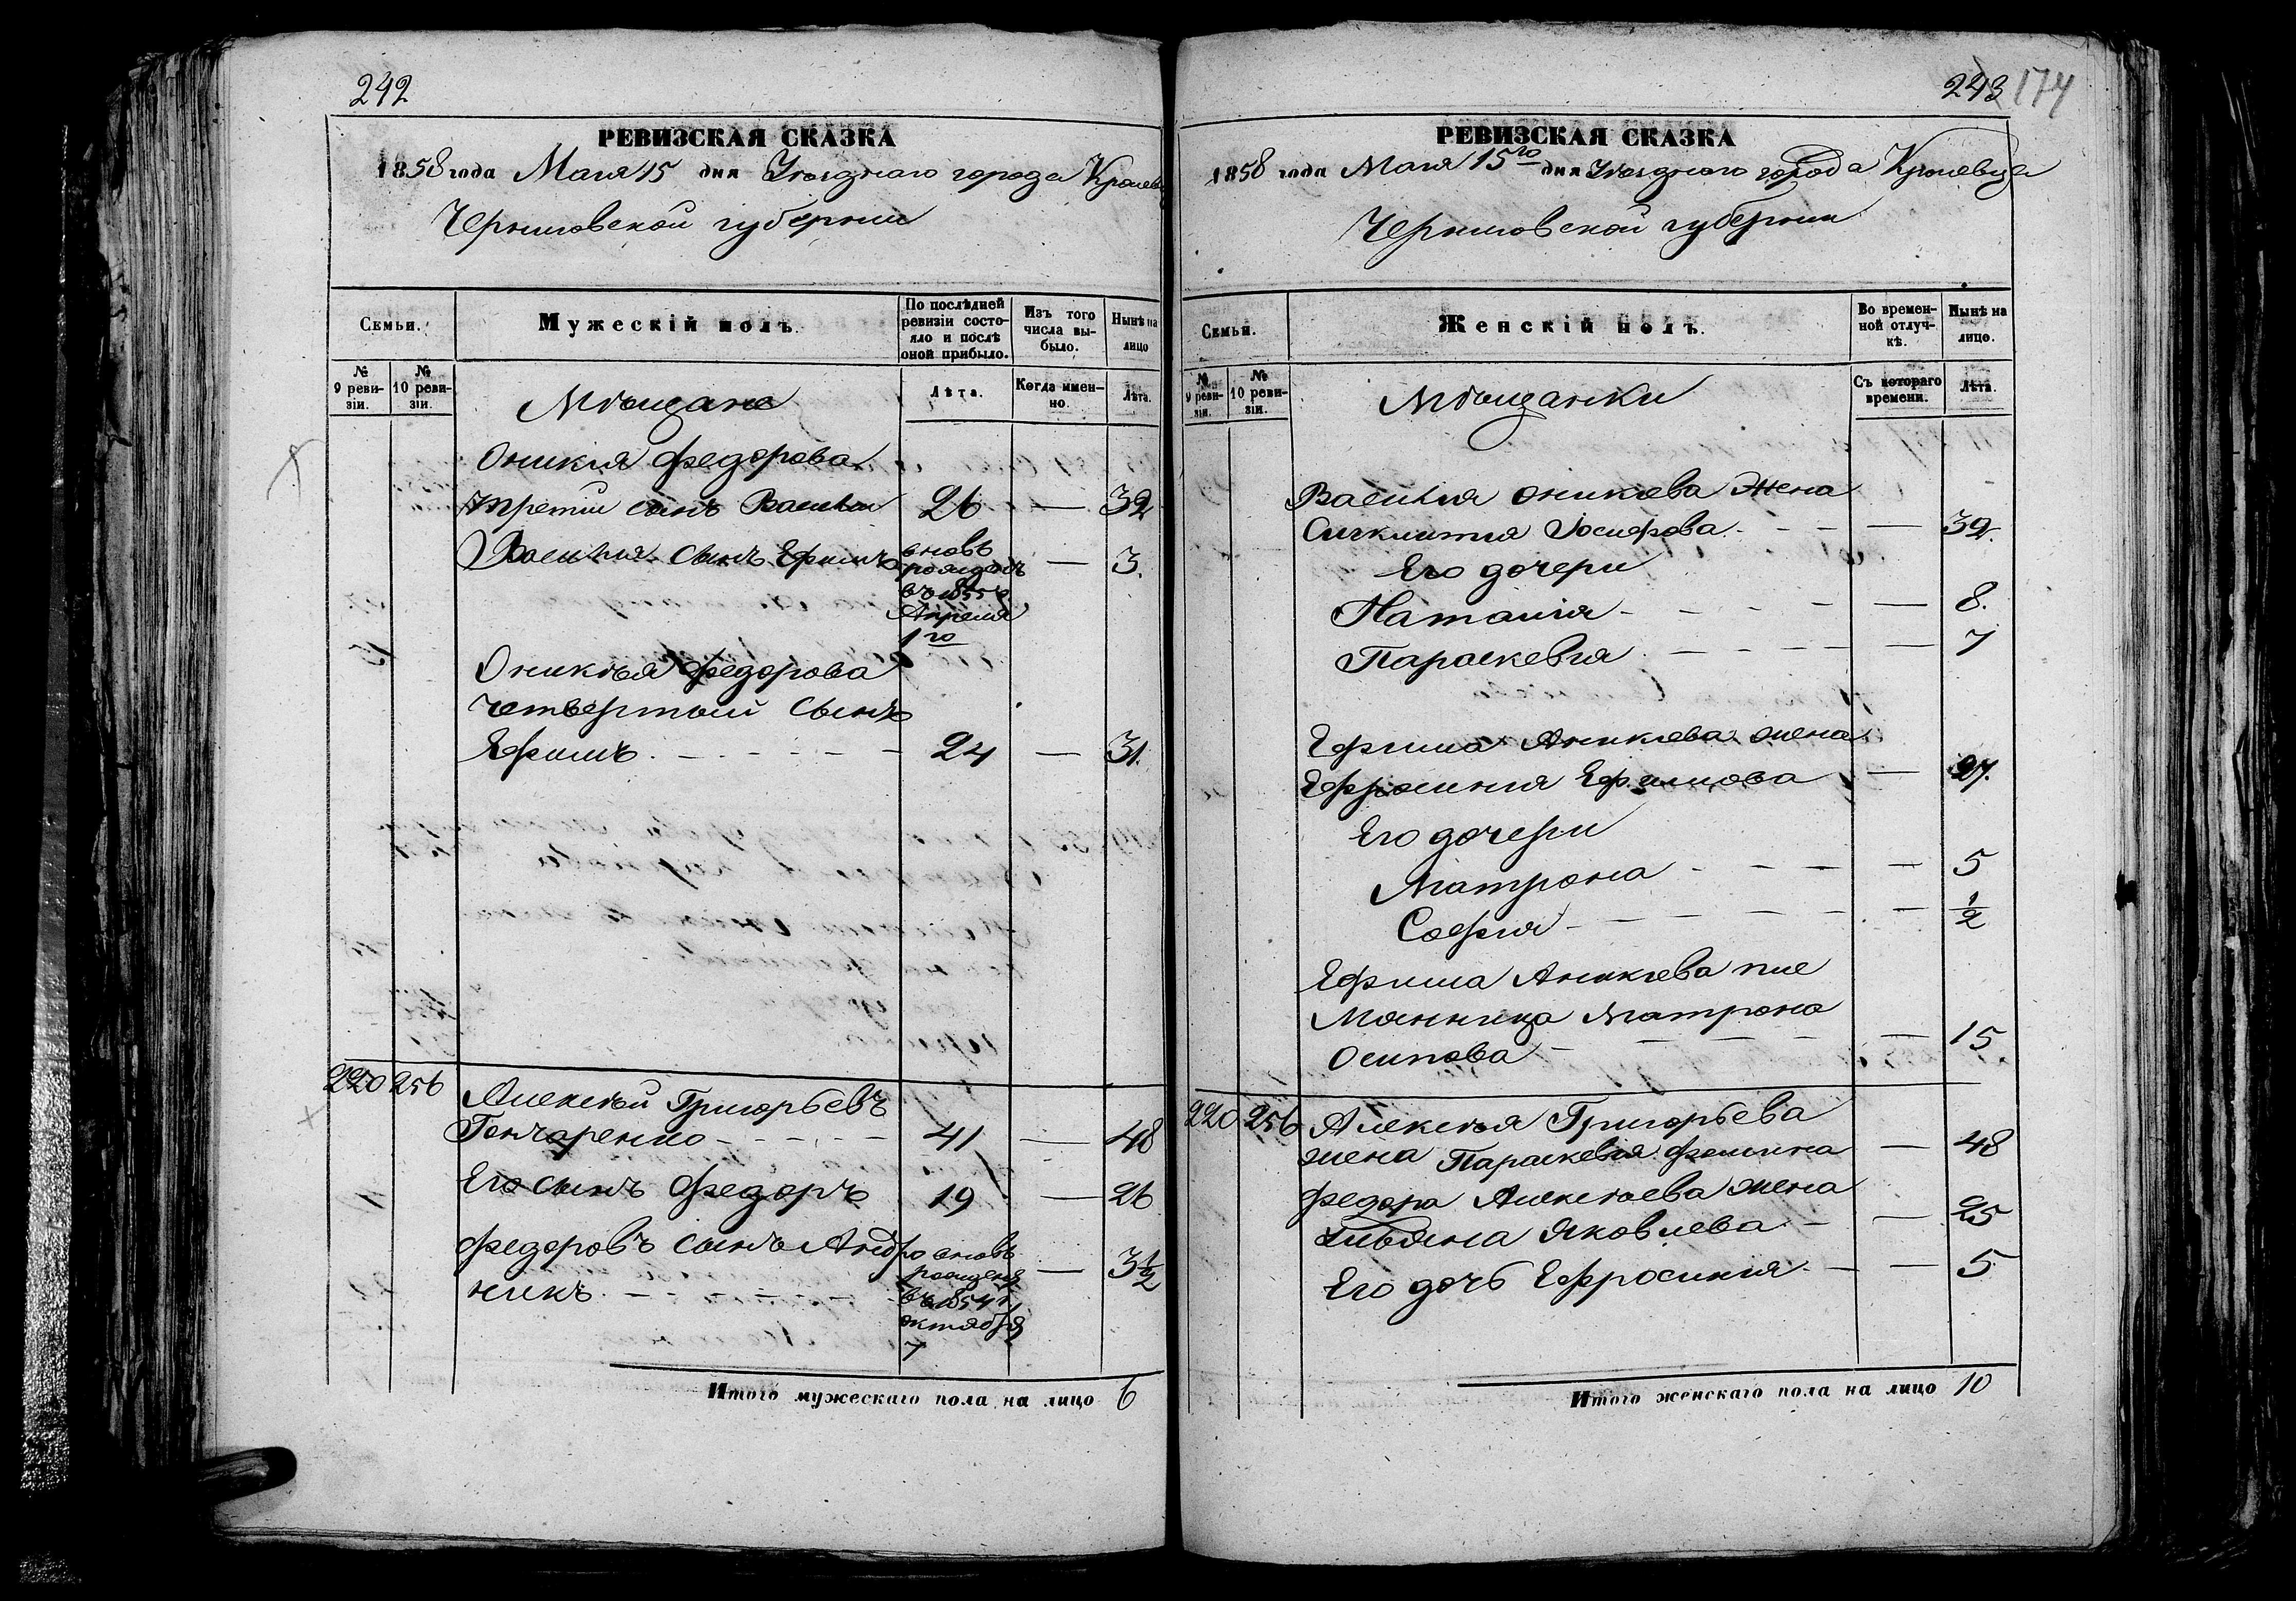 242
РЕВИЗСКАЯ СКАЗКА
1858 года Маія 15 дня Уѣзднаго города Кролев
Черниговской губерніи
Семьи.
Мужескій полъ.
По послѣдней ревизіи состояло и послѣ оной прибыло.
Изъ того числа выбыло.
Нынѣ на лицо
№ 9 ревизіи.
№ 10 ревизіи.
Мѣщане
Лѣта.
Когда именно.
Лѣта.
Оникія Федорова
третій сынъ Василій 26 — 32
Василія сынъ Ефимъ вновь — 3.
рожденъ
въ 1855 г.
Апреля
1го
Оникѣя Федорова
четвертый сынъ
Ефимъ. - - - - - 24 — 31.
220 256 Алексѣй Григорьевъ
Гончаренко - - - - - 41 — 48
Его сынъ Федоръ 19 — 26
Федоровъ сынъ Андро вновь — 3½
никъ. - - - - рожденъ
въ 1854 г.
октября
7
Итого мужескаго пола на лицо 6
243 174
РЕВИЗСКАЯ СКАЗКА
1858 года Маія 15го дня Уѣзднаго города Кролевца
Черниговской губерніи
Семьи.
Женскій полъ.
Во временной отлучкѣ.
Нынѣ на лицо.
№ 9 ревизіи.
№ 10 ревизіи.
Мѣщанки
Съ котораго времени.
Лѣта.
Василія Оникіева жена
Іосифова. - - - — 32.
Его дочери
Наталія - - - - — 8.
Параскевія. - - - - — 7
Ефима Аникіева жена
Ефросинія Ефимова — 27.
Его дочери
Матрона - - - — 5
Софія - - - - - — ½
Ефима Аникіева пле
мянница Матрона
Осипова - - - - — 15
220 256 Алексѣя Григорьева
жена Параскевія Фомина — 48
Федора Алексѣева жена
Яковлева - — 25
Его дочь Ефросинія - — 5
Итого женскаго пола на лицо 10